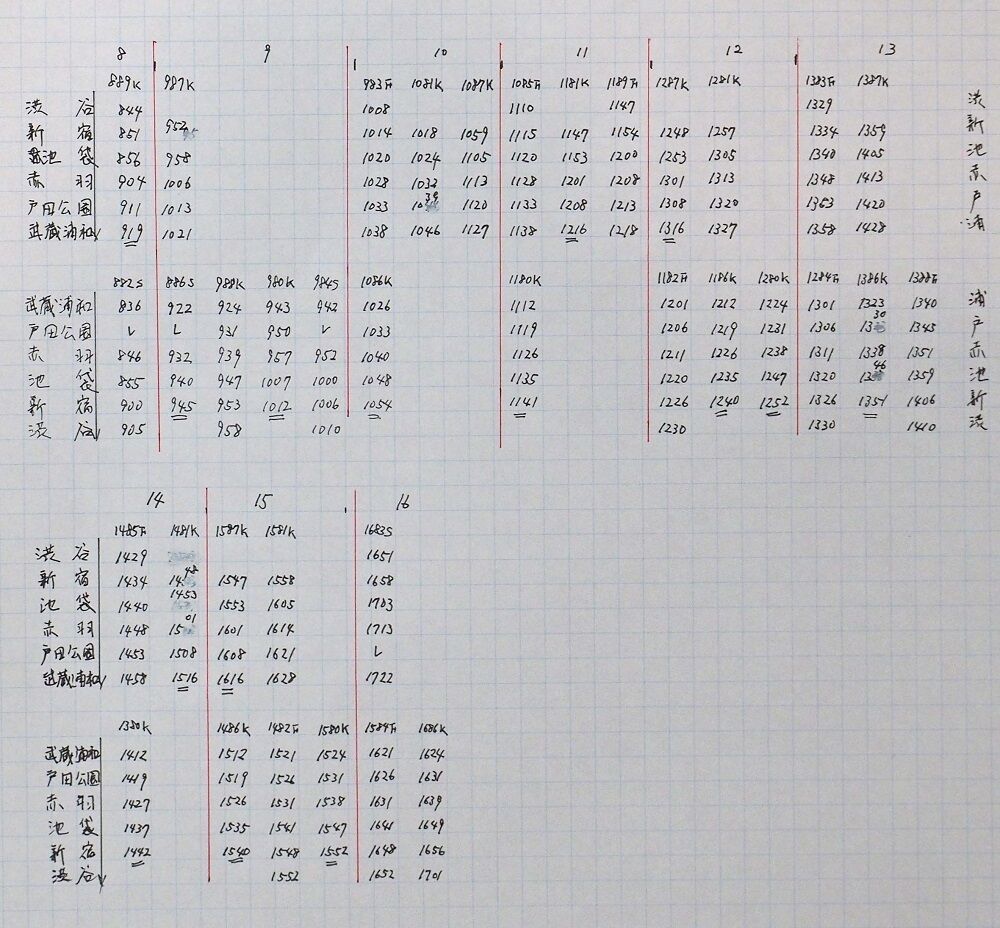 8 9 10 11 12 13
889K 987K 983F 1081K 1087K 1085F 1181K 1189F 1287K 1281K 1383F 1387K
渋谷 844 1008 1110 1147 1329 渋
新宿 851 952 1014 1018 1059 1115 1147 1154 1248 1257 1334 1359 新
池袋 856 958 1020 1024 1105 1120 1153 1200 1253 1305 1340 1405 池
赤羽 904 1006 1028 1032 1113 1128 1201 1208 1301 1313 1348 1413 赤
戸田公園 911 1013 1033 1039 1120 1133 1208 1213 1308 1320 1353 1420 戸
武蔵浦和 919 1021 1038 1046 1127 1138 1216 1218 1316 1327 1358 1428 浦
882S 886S 988K 980K 984S 1086K 1180K 1182F 1186K 1280K 1284F 1386K 1388F
武蔵浦和 836 922 924 943 942 1026 1112 1201 1212 1224 1301 1323 1340 浦
戸田公園 レ レ 931 950 レ 1033 1119 1206 1219 1231 1306 1330 1345 戸
赤羽 846 932 939 957 952 1040 1126 1211 1226 1238 1311 1338 1351 赤
池袋 855 940 947 1007 1000 1048 1135 1220 1235 1247 1320 1346 1359 池
新宿 900 945 953 1012 1006 1054 1141 1226 1240 1252 1326 1351 1406 新
渋谷 905 958 1010 1230 1330 1410 渋
14 15 16
1485F 1481K 1587K 1581K 1683S
渋谷 1429 1651
新宿 1434 1448 1547 1558 1658
池袋 1440 1453 1553 1605 1703
赤羽 1448 1501 1601 1614 1713
戸田公園 1453 1508 1608 1621 レ
武蔵浦和 1458 1516 1616 1628 1722
1380K 1486K 1482F 1580K 1584F 1686K
武蔵浦和 1412 1512 1521 1524 1621 1624
戸田公園 1419 1519 1526 1531 1626 1631
赤羽 1427 1526 1531 1538 1631 1639
池袋 1437 1535 1541 1547 1641 1649
新宿 1442 1540 1548 1552 1648 1656
渋谷 1552 1652 1701